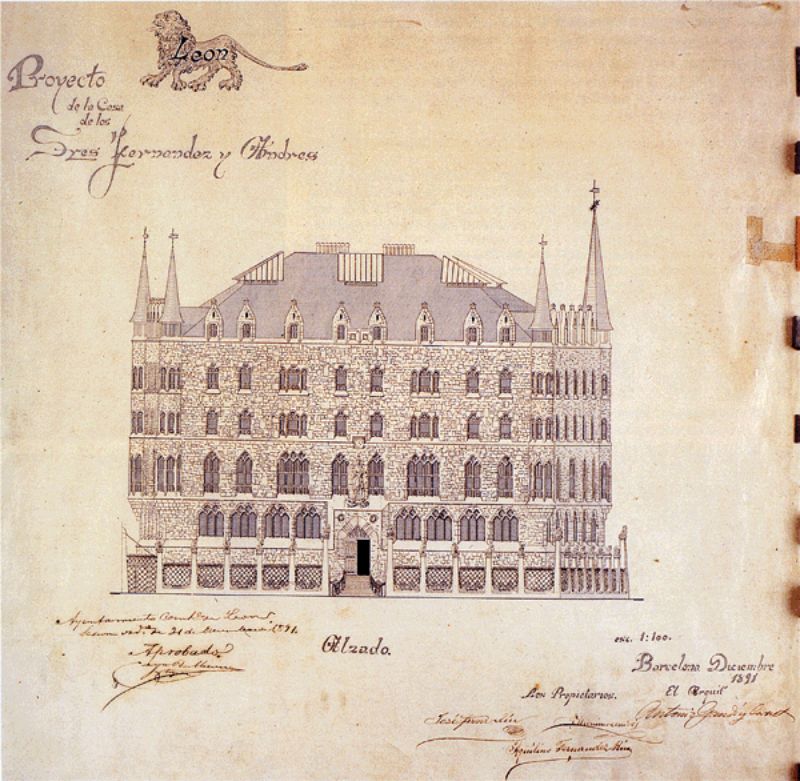 Leon
Proyecto
de la Casa
de los
Sres Fernandez y Andres
Ayuntamiento Leon
de 31 de 1891.
Aprobado
Alzado.
esc. 1:100.
Barcelona Diciembre
1891
Los Propietarios. El Arquit
José Antonio Gaudí y Cornet
Aquilino Fernandez